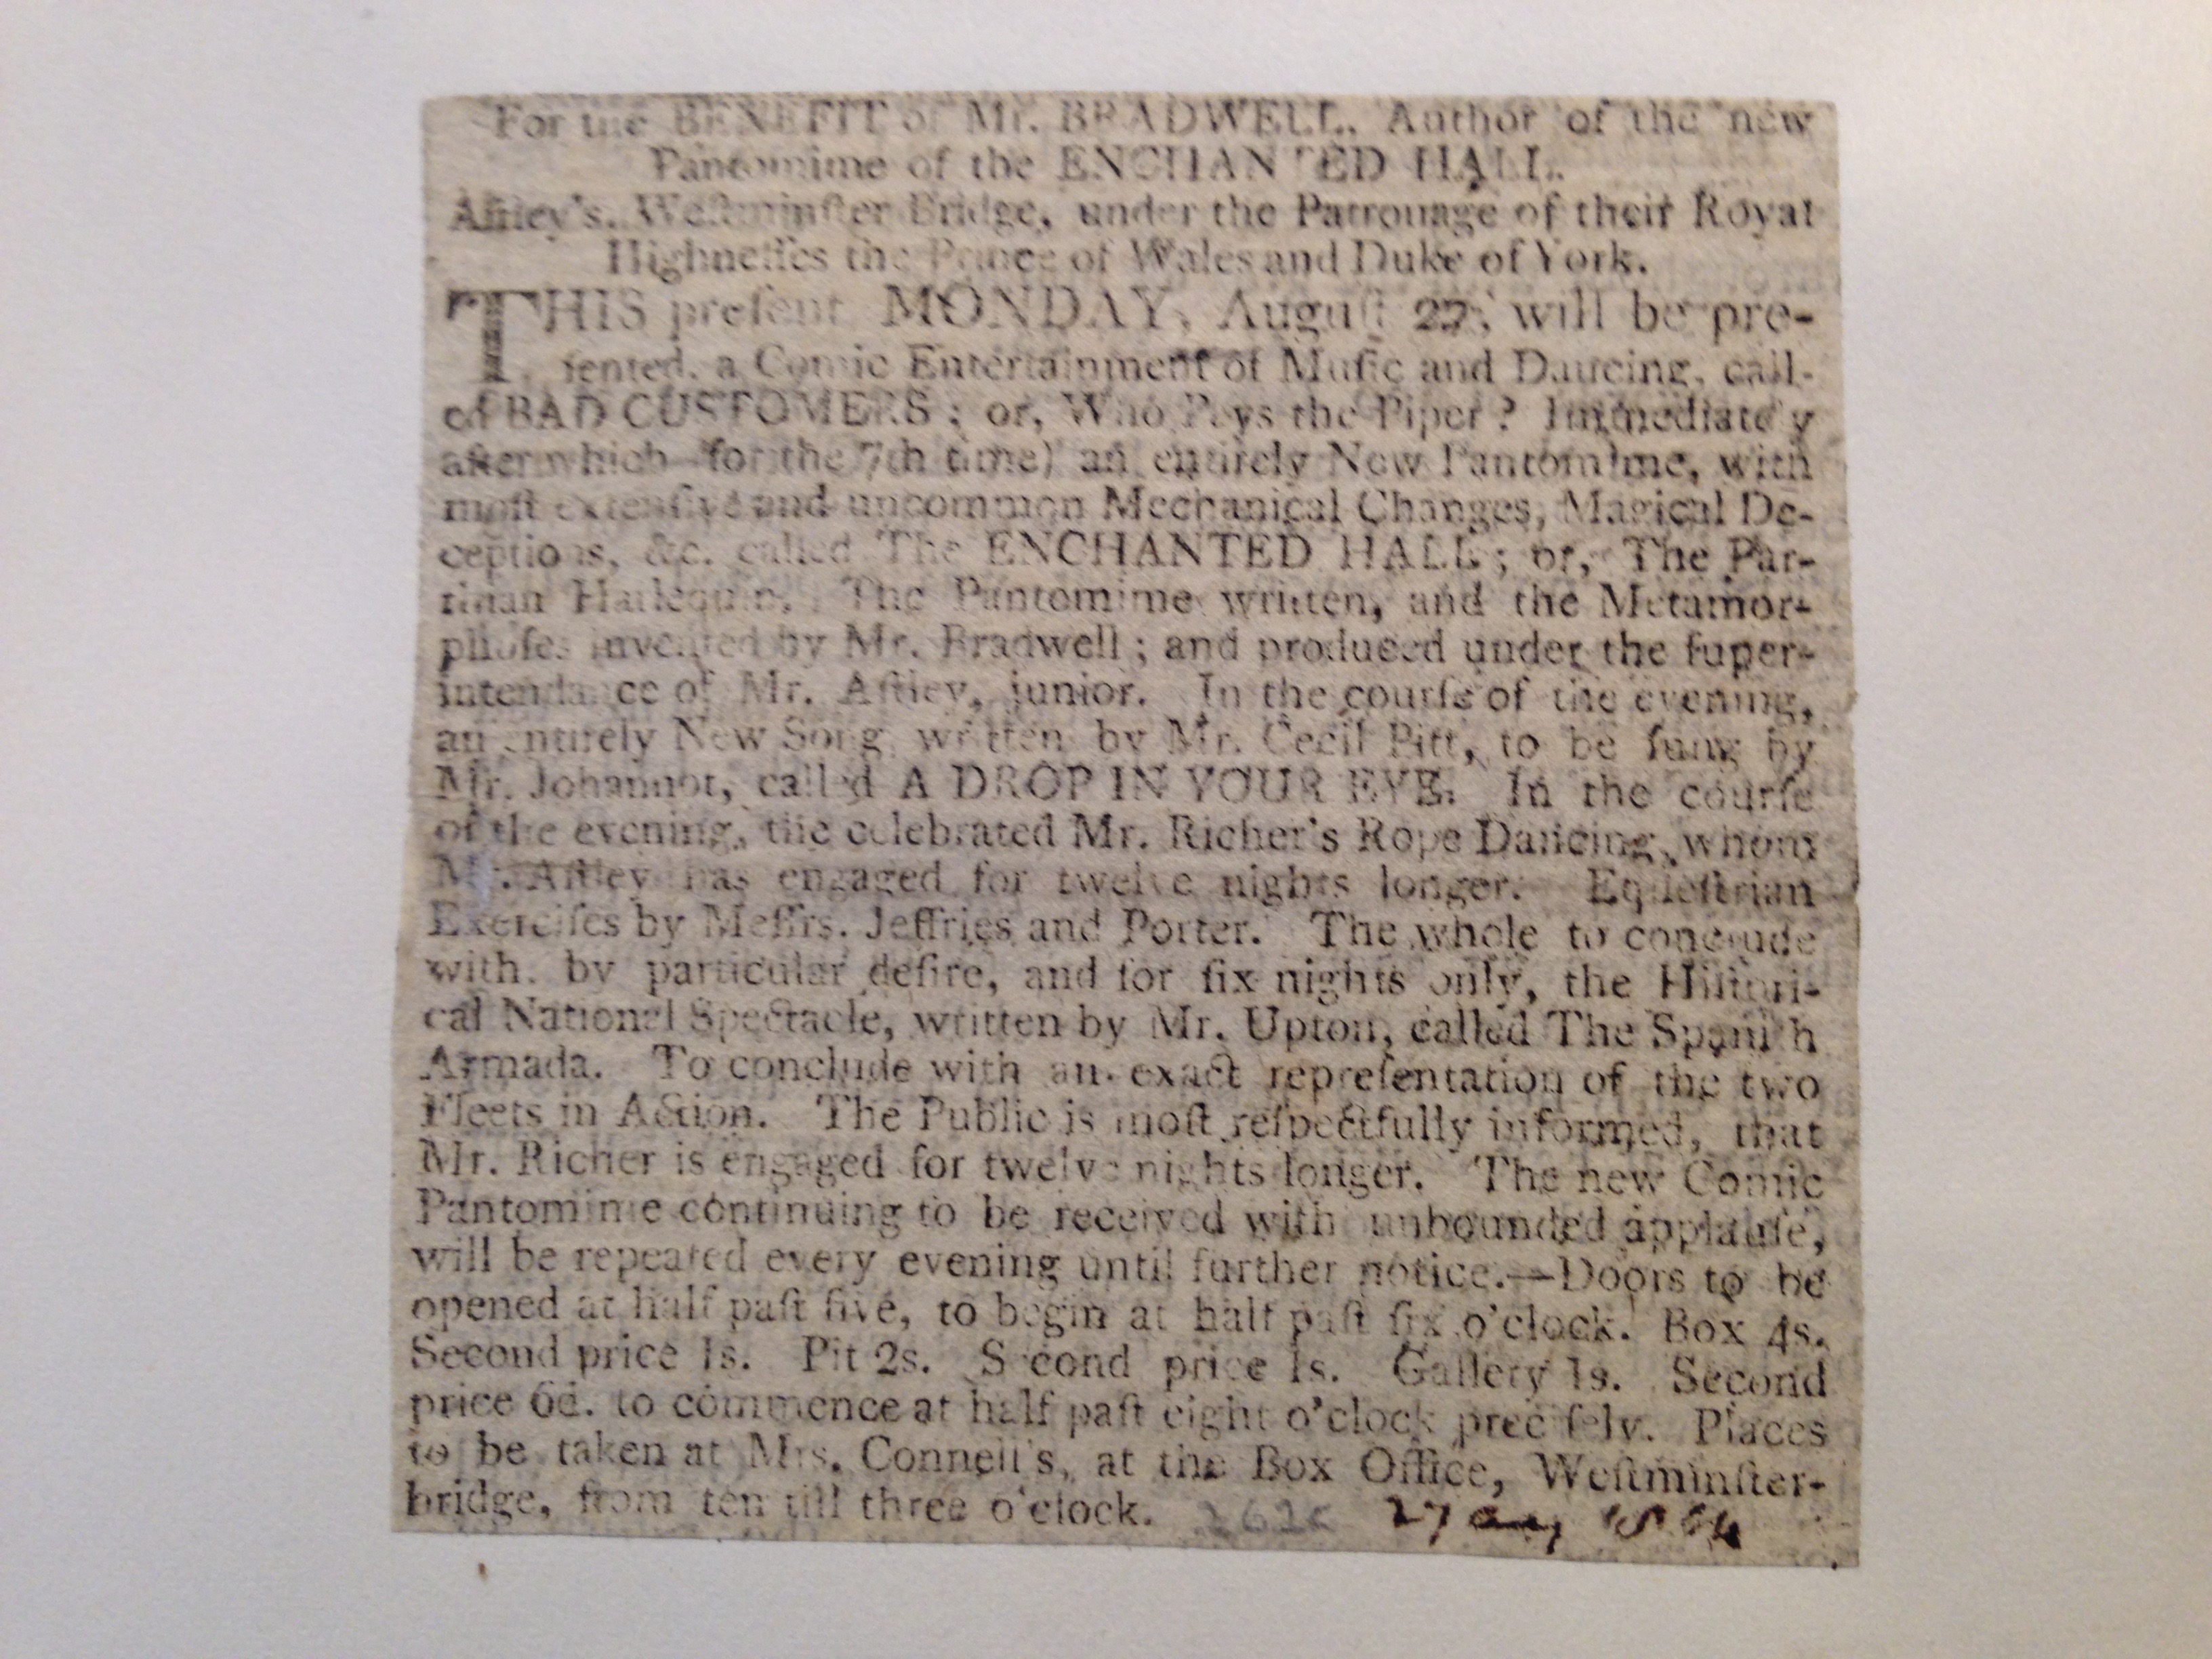 For the BENEFIT of Mr. BRADWELL. Author of the new
Pantomime of the ENCHANTED HALL.
Aſtley's, Weſtminſter Bridge, under the Patronage of their Royal
Highneſſes the Prince of Wales and Duke of York.
THIS preſent MONDAY, Auguſt 27, will be pre-
ſented, a Comic Entertainment of Muſic and Dancing, call-
ed BAD CUSTOMERS; or, Who Pays the Piper? Immediately
after which (for the 7th time) an entirely New Pantomime, with
moſt extenſive and uncommon Mechanical Changes, Magical De-
ceptions, &c. called The ENCHANTED HALL; or, The Par-
Harlequin. The Pantomime written, and the Metamor-
phoſes invented by Mr. Bradwell; and produced under the ſuper-
intendance of Mr. Aſtley, junior. In the courſe of the evening,
an entirely New Song, written by Mr. Cecil Pitt, to be ſung by
Mr. Johannot, called A DROP IN YOUR EYE. In the courſe
of the evening, the celebrated Mr. Richer's Rope Dancing, whom
Mr. Aſtley has engaged for twelve nights longer. Equeſtrian
Exerciſes by Meſſrs. Jeffries and Porter. The whole to conclude
with, by particular deſire, and for ſix nights only, the Hiſtori-
cal National Spectacle, written by Mr. Upton, called The Spaniſh
Armada. To conclude with an exact repreſentation of the two
Fleets in Action. The Public is moſt reſpectfully informed, that
Mr. Richer is engaged for twelve nights longer. The new Comic
Pantomime continuing to be received with unbounded applauſe,
will be repeated every evening until further notice.—Doors to be
opened at half paſt five, to begin at half paſt ſix o'clock. Box 4s.
Second price 1s. Pit 2s. Second price 1s. Gallery 1s. Second
price 6d. to commence at half paſt eight o'clock preciſely. Places
to be taken at Mrs. Connell's, at the Box Office, Weſtminſter-
bridge, from ten till three o'clock. 27